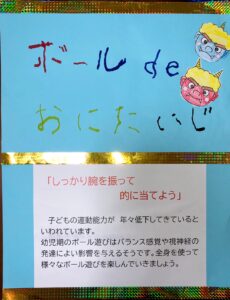 ボール de
おにたいじ
「しっかり腕を振って
的に当てよう」
子どもの運動能力が 年々低下してきていると
いわれています。
幼児期のボール遊びはバランス感覚や視神経の
発達によい影響を与えるそうです。全身を使って
様々なボール遊びを楽しんでいきましょう。